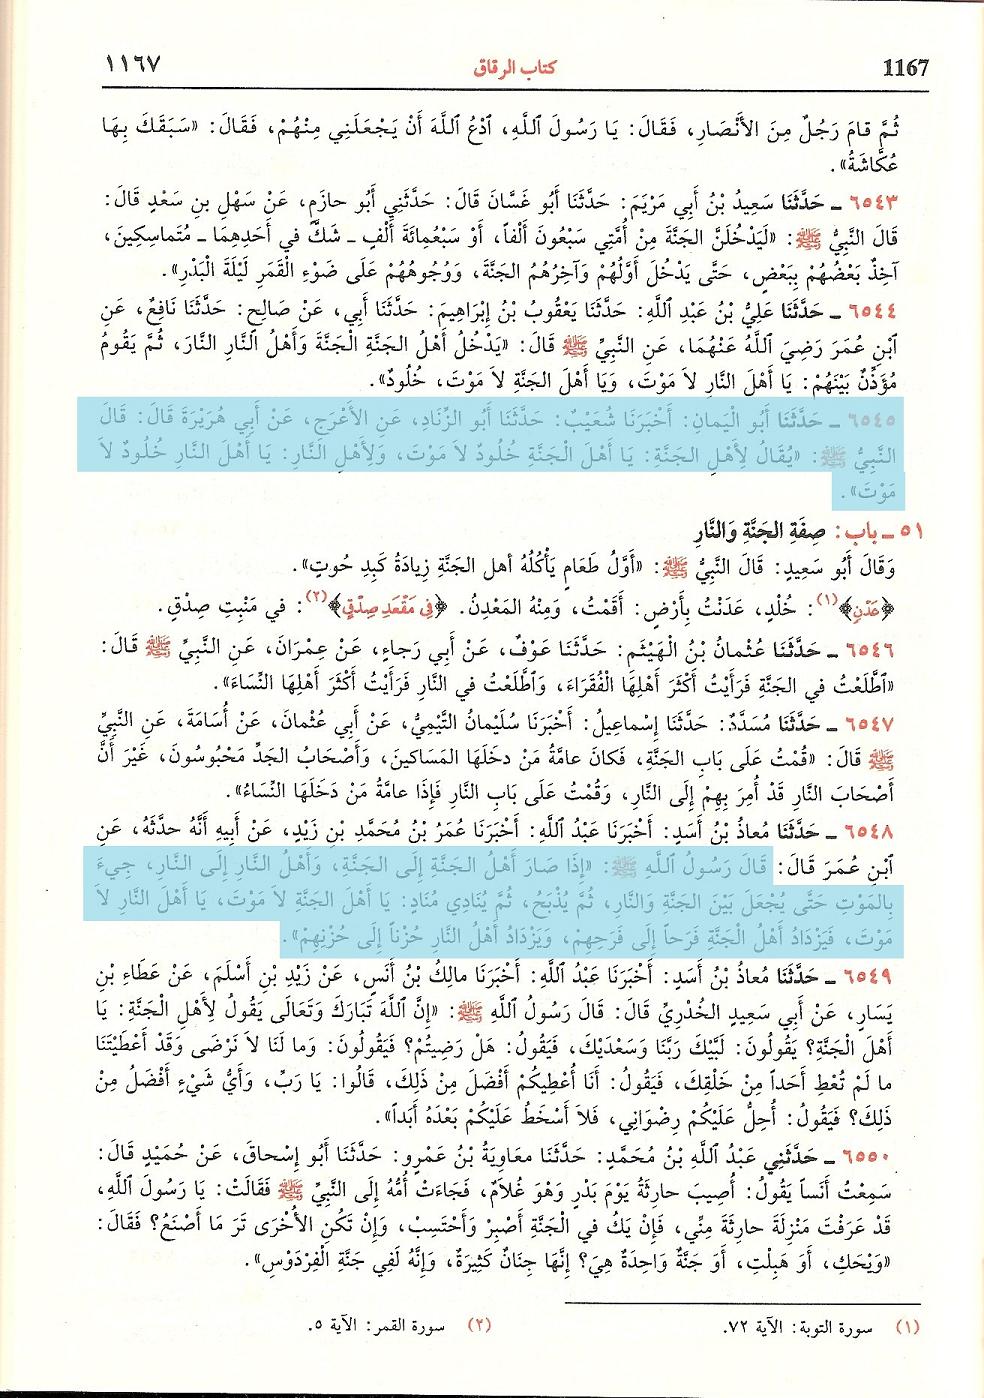 1167 كتاب الرقاق ١١٦٧
ثُمَّ قامَ رَجُلٌ مِنَ الأَنْصَارِ، فَقَالَ: يَا رَسُولَ ٱللَّهِ، ٱدْعُ ٱللَّهَ أَنْ يَجْعَلَنِي مِنْهُمْ، فَقَالَ: «سَبَقَكَ بِهَا
عُكَّاشَةُ».
٦٥٤٣ ـ حَدَّثَنَا سَعِيدُ بْنُ أَبِي مَرْيَمَ: حَدَّثَنَا أَبُو غَسَّانَ قَالَ: حَدَّثَنِي أَبُو حازِمٍ، عَنْ سَهْلِ بنِ سَعْدٍ قَالَ:
قَالَ النَّبِيُّ ﷺ: «لَيَدْخُلَنَّ الجَنَّةَ مِنْ أُمَّتِي سَبْعُونَ أَلْفاً، أَوْ سَبْعُمِائَةِ أَلْفٍ ـ شَكَّ في أَحَدِهِمَا ـ مُتَماسِكِينَ،
آخِذٌ بَعْضُهُمْ بِبَعْضٍ، حَتَّى يَدْخُلَ أَوَّلُهُمْ وَآخِرُهُمُ الجَنَّةَ، وَوُجُوهُهُمْ عَلَى ضَوْءِ الْقَمَرِ لَيْلَةَ الْبَدْرِ».
٦٥٤٤ ـ حَدَّثَنَا عَلِيُّ بْنُ عَبْدِ ٱللَّهِ: حَدَّثَنَا يَعْقُوبُ بْنُ إِبْرَاهِيمَ: حَدَّثَنَا أَبِي، عَنْ صَالِحٍ: حَدَّثَنَا نَافِعٌ، عَنِ
ٱبْنِ عُمَرَ رَضِيَ ٱللَّهُ عَنْهُمَا، عَنِ النَّبِيِّ ﷺ قَالَ: «يَدْخُلُ أَهْلُ الجَنَّةِ الْجَنَّةَ وَأَهْلُ النَّارِ النَّارَ، ثُمَّ يَقُومُ
مُؤَذِّنٌ بَيْنَهُمْ: يَا أَهْلَ النَّارِ لاَ مَوْتَ، وَيَا أَهْلَ الجَنَّةِ لاَ مَوْتَ، خُلُودٌ».
٦٥٤٥ ـ حَدَّثَنَا أَبُو الْيَمانِ: أَخْبَرَنَا شُعَيْبٌ: حَدَّثَنَا أَبُو الزِّنَادِ، عَنِ الأَعْرَجِ، عَنْ أَبِي هُرَيْرَةَ قَالَ: قَالَ
النَّبِيُّ ﷺ: «يُقَالُ لِأَهْلِ الجَنَّةِ: يَا أَهْلَ الْجَنَّةِ خُلُودٌ لاَ مَوْتَ، وَلِأَهْلِ النَّارِ: يَا أَهْلَ النَّارِ خُلُودٌ لاَ
مَوْتَ».
٥١ ـ باب: صِفَةِ الجَنَّةِ وَالنَّارِ
وَقَالَ أَبُو سَعِيدٍ: قَالَ النَّبِيُّ ﷺ: «أَوَّلُ طَعَامٍ يَأْكُلُهُ أهل الجَنَّةِ زِيادَةُ كَبِدِ حُوتٍ».
﴿عَدْنٍ﴾(١): خُلْدٍ، عَدَنْتُ بِأَرْضٍ: أَقَمْتُ، وَمِنْهُ المَعْدِنُ. ﴿فِي مَقْعَدِ صِدْقٍ﴾(٢): في مَنْبِتِ صِدْقٍ.
٦٥٤٦ ـ حَدَّثَنَا عُثْمانُ بْنُ الْهَيْثَمِ: حَدَّثَنَا عَوْفٌ، عَنْ أَبِي رَجاءٍ، عَنْ عِمْرَانَ، عَنِ النَّبِيِّ ﷺ قَالَ:
«ٱطَّلَعْتُ في الجَنَّةِ فَرَأَيْتُ أَكْثَرَ أَهْلِهَا الْفُقَرَاءَ، وَٱطَّلَعْتُ في النَّارِ فَرَأَيْتُ أَكْثَرَ أَهْلِهَا النِّسَاءَ».
٦٥٤٧ ـ حَدَّثَنَا مُسَدَّدٌ: حَدَّثَنَا إِسْماعِيلُ: أَخْبَرَنَا سُلَيْمانُ التَّيْمِيُّ، عَنْ أَبِي عُثْمانَ، عَنْ أُسَامَةَ، عَنِ النَّبِيِّ
ﷺ قَالَ: «قُمْتُ عَلَى بَابِ الجَنَّةِ، فَكانَ عامَّةُ مَنْ دخَلَهَا المَسَاكِينَ، وَأَصْحَابُ الجَدِّ مَحْبُوسُونَ، غَيْرَ أَنَّ
أَصْحَابَ النَّارِ قَدْ أُمِرَ بِهِمْ إِلَى النَّارِ، وَقُمْتُ عَلَى بَابِ النَّارِ فَإِذَا عامَّةُ مَنْ دَخَلَهَا النِّسَاءُ».
٦٥٤٨ ـ حَدَّثَنَا مُعاذُ بْنُ أَسَدٍ: أَخْبَرَنَا عَبْدُ ٱللَّهِ: أَخْبَرَنَا عُمَرُ بْنُ مُحَمَّدِ بْنِ زَيْدٍ، عَنْ أَبِيهِ أَنَّهُ حدَّثَهُ، عَنِ
ٱبْنِ عُمَرَ قَالَ: قَالَ رَسُولُ ٱللَّهِ ﷺ: «إِذَا صَارَ أَهْلُ الجَنَّةِ إِلَى الجَنَّةِ، وَأَهْلُ النَّارِ إِلَى النَّارِ، جِيءَ
بِالمَوْتِ حَتَّى يُجْعَلَ بَيْنَ الجَنَّةِ وَالنَّارِ، ثُمَّ يُذْبَحُ، ثُمَّ يُنَادِي مُنَادٍ: يَا أَهْلَ الْجَنَّةِ لاَ مَوْتَ، يَا أَهْلَ النَّارِ لاَ
مَوْتَ، فَيَزْدَادُ أَهْلُ الْجَنَّةِ فَرَحاً إِلَى فَرَحِهِمْ، وَيَزْدَادُ أَهْلُ النَّارِ حُزْناً إِلَى حُزْنِهِمْ».
٦٥٤٩ ـ حَدَّثَنَا مُعاذُ بْنُ أَسَدٍ: أَخْبَرَنَا عَبْدُ ٱللَّهِ: أَخْبَرَنَا مالِكُ بْنُ أَنَسٍ، عَنْ زَيْدِ بْنِ أَسْلَمَ، عَنْ عَطَاءِ بْنِ
يَسَارٍ، عَنْ أَبِي سَعِيدٍ الخُدْرِيِّ قَالَ: قَالَ رَسُولُ ٱللَّهِ ﷺ: «إِنَّ ٱللَّهَ تَبَارَكَ وَتَعَالَى يَقُولُ لِأَهْلِ الْجَنَّةِ: يَا
أَهْلَ الْجَنَّةِ؟ يَقُولُونَ: لَبَّيْكَ رَبَّنَا وَسَعْدَيْكَ، فَيَقُولُ: هَلْ رَضِيتُمْ؟ فَيَقُولُونَ: وَما لَنَا لاَ نَرْضَى وَقَدْ أَعْطَيْتَنَا
ما لَمْ تُعْطِ أَحَداً مِنْ خَلْقِكَ، فَيَقُولُ: أَنَا أُعْطِيكُمْ أَفْضَلَ مِنْ ذَلِكَ، قَالُوا: يَا رَبِّ، وَأَيُّ شَيْءٍ أَفْضَلُ مِنْ
ذَلِكَ؟ فَيَقُولُ: أُحِلُّ عَلَيْكُمْ رِضْوَانِي، فَلاَ أَسْخَطُ عَلَيْكُمْ بَعْدَهُ أَبَداً».
٦٥٥٠ ـ حَدَّثَنِي عَبْدُ ٱللَّهِ بْنُ مُحَمَّدٍ: حَدَّثَنَا معَاوِيَةُ بْنُ عَمْرٍو: حَدَّثَنَا أَبُو إِسْحاقَ، عَنْ حُمَيْدٍ قَالَ:
سَمِعْتُ أَنَساً يَقُولُ: أُصِيبَ حارِثَةُ يَوْمَ بَدْرٍ وَهْوَ غُلاَمٌ، فَجَاءَتْ أُمُّهُ إِلَى النَّبِيِّ ﷺ فَقَالَتْ: يَا رَسُولَ ٱللَّهِ،
قَدْ عَرَفْتَ مَنْزِلَةَ حارِثَةَ مِنِّي، فَإِنْ يَكُ في الْجَنَّةِ أَصْبِرْ وَأَحْتَسِبْ، وَإِنْ تَكُنِ الأُخْرَى تَرَ مَا أَصْنَعُ؟ فَقَالَ:
«وَيْحَكِ، أَوَ هَبِلْتِ، أَوَ جَنَّةٌ وَاحِدَةٌ هِيَ؟ إِنَّهَا جِنَانٌ كَثِيرَةٌ، وَإِنَّهُ لَفِي جَنَّةِ الْفِرْدَوْسِ».
(١) سورة التوبة: الآية ٧٢. (٢) سورة القمر: الآية ٥.